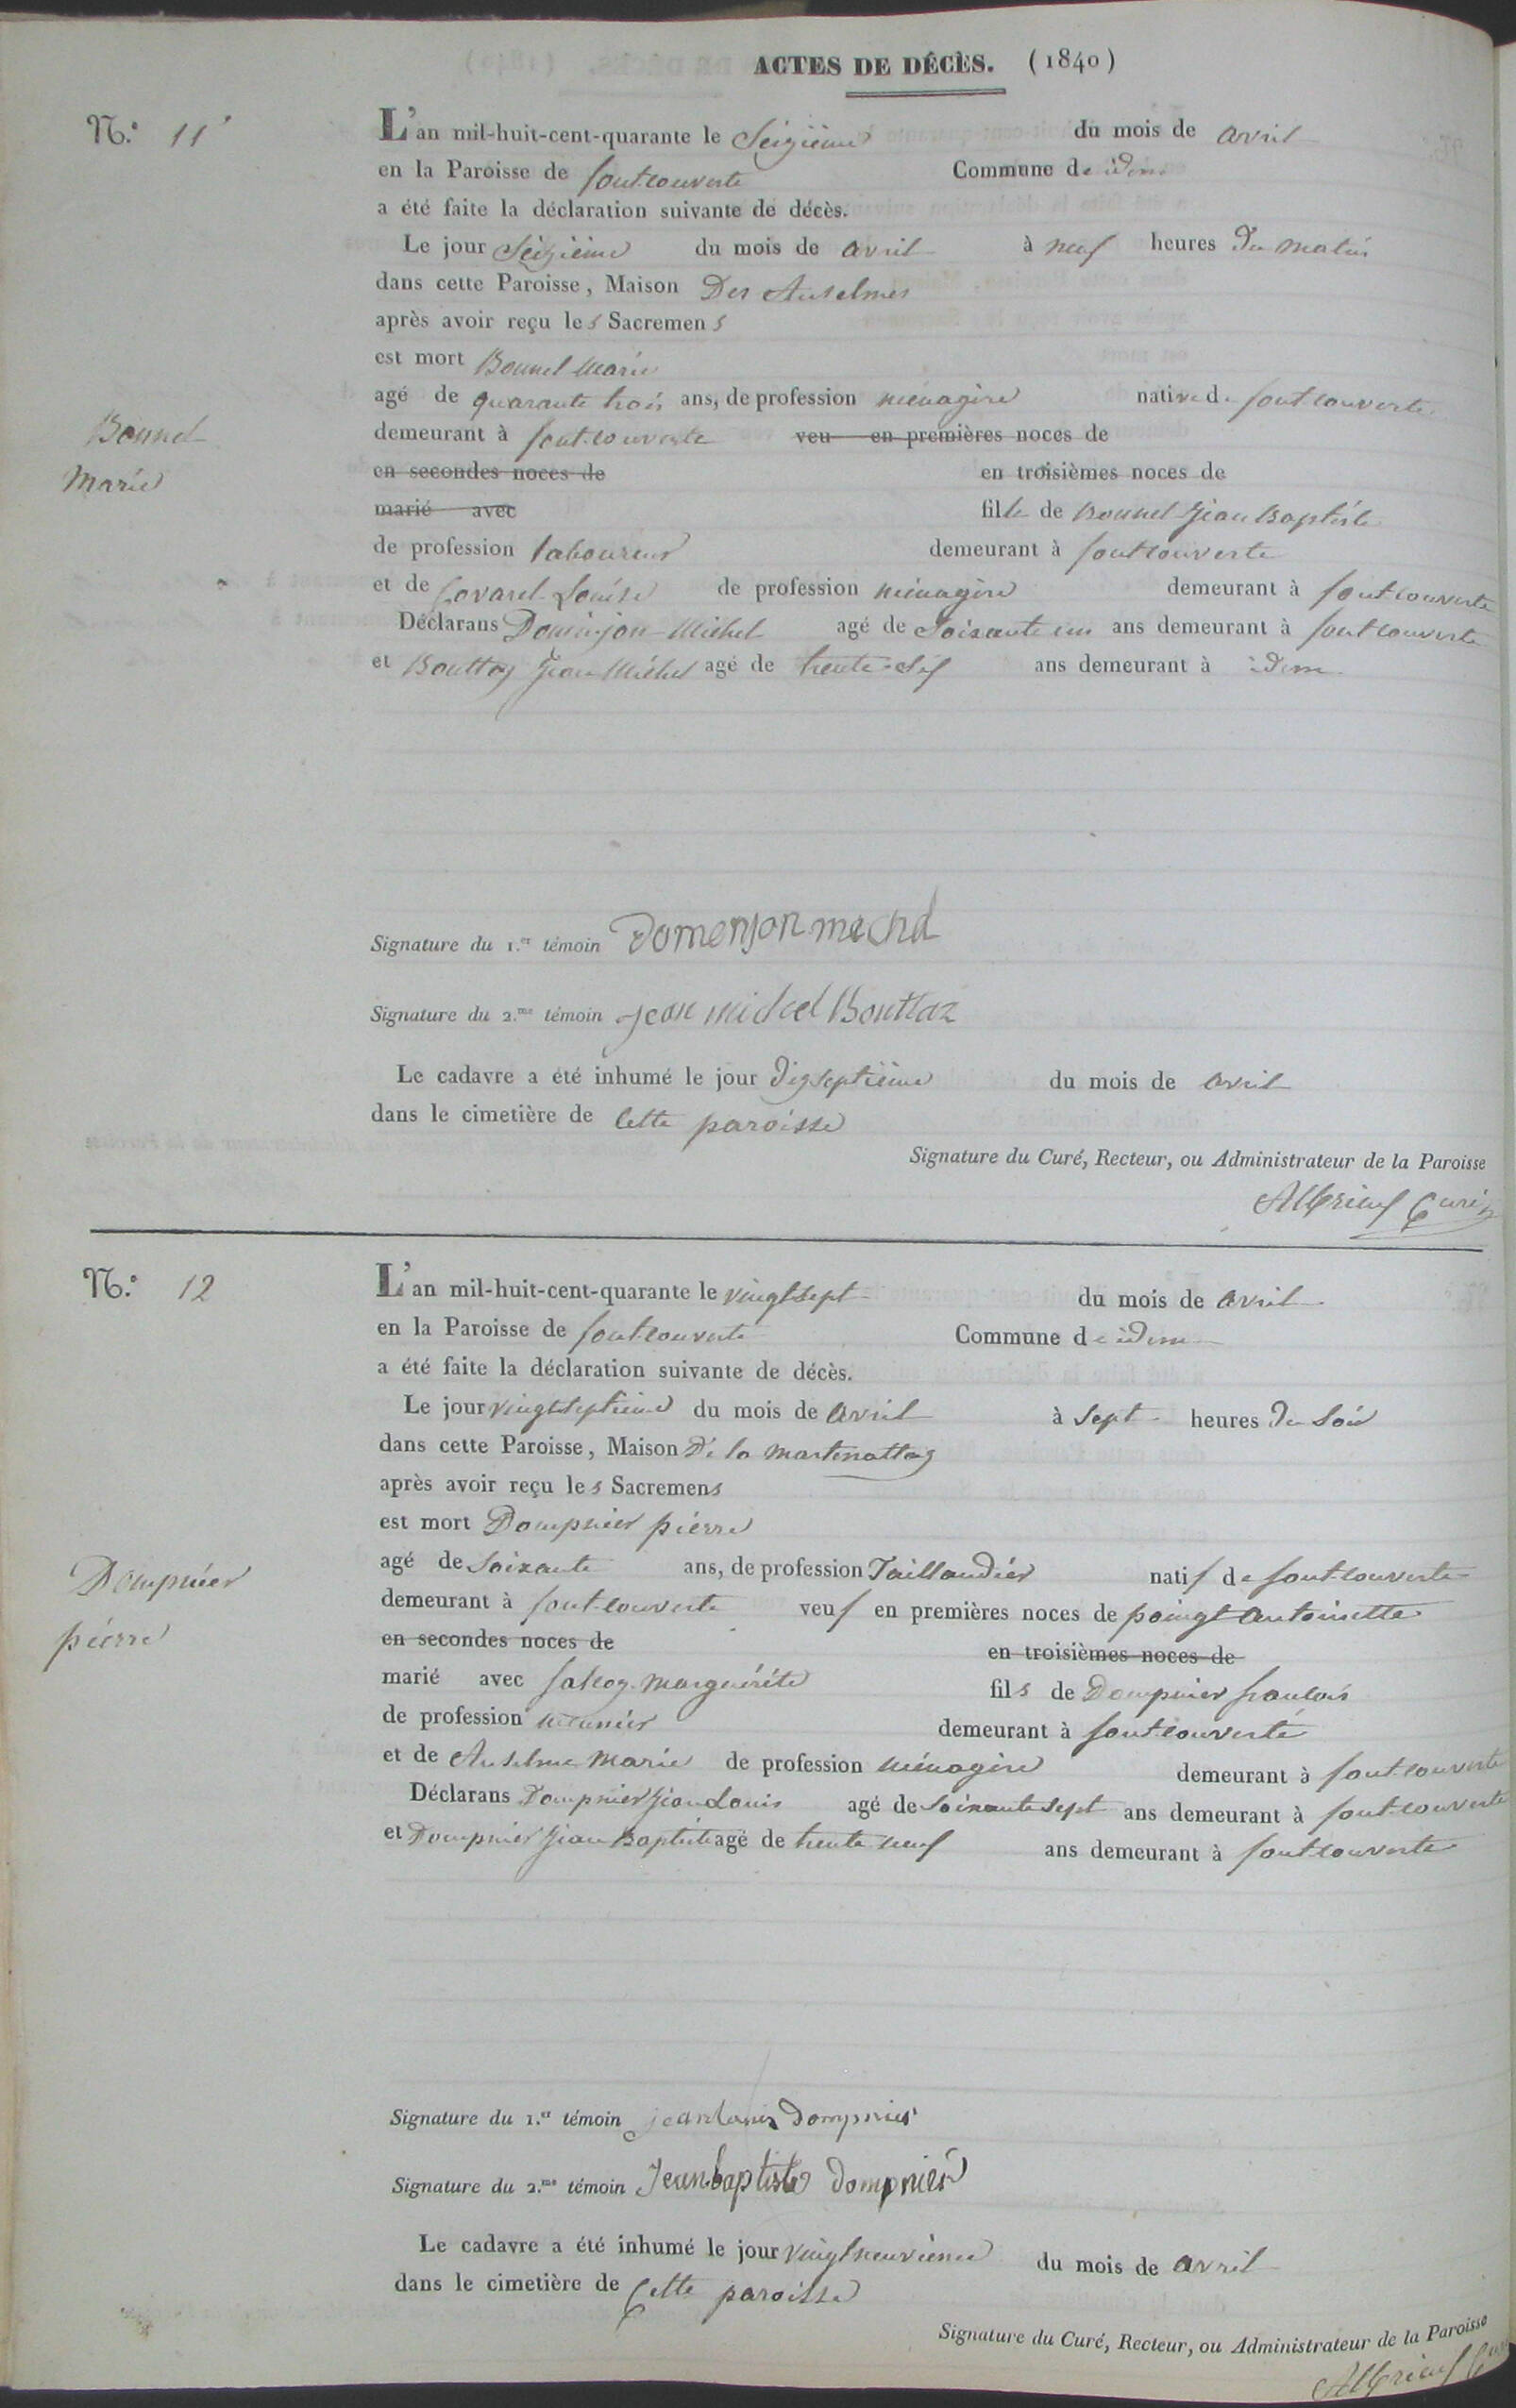 ACTES DE DÉCÈS. (1840)
N.º 11
L'an mil-huit-cent-quarante le Seizième du mois de avril
en la Paroisse de fontcouverte Commune de idem
a été faite la déclaration suivante de décès.
Le jour Seizième du mois de avril à neuf heures du matin
dans cette Paroisse, Maison Des Anselmes
après avoir reçu les Sacremens
est mort Bonnel Marie
agé de quarante trois ans, de profession ménagère native de fontcouverte
Bonnel
Marie
demeurant à fontcouverte veu en premières noces de
en secondes noces de en troisièmes noces de
marié avec fille de Bonnel Jean Baptiste
de profession laboureur demeurant à fontcouverte
et de Covarel Louise de profession ménagère demeurant à fontcouverte
Déclarans Domenjon Michel agé de Soixante un ans demeurant à fontcouverte
et Bouttaz Jean Michel agé de trente-six ans demeurant à idem
Signature du 1.er témoin Domenjon mechel
Signature du 2.me témoin Jean michel Bouttaz
Le cadavre a été inhumé le jour dixseptième du mois de avril
dans le cimetière de cette paroisse
Signature du Curé, Recteur, ou Administrateur de la Paroisse
Albrieux Curé
N.º 12
L'an mil-huit-cent-quarante le vingtsept du mois de avril
en la Paroisse de fontcouverte Commune de idem
a été faite la déclaration suivante de décès.
Le jour vingtseptième du mois de avril à sept heures du Soir
dans cette Paroisse, Maison De la martenattaz
après avoir reçu les Sacremens
est mort Dompnier pierre
agé de Soixante ans, de profession Taillandier natif de fontcouverte
Dompnier
pierre
demeurant à fontcouverte veuf en premières noces de poingt antoinette
en secondes noces de en troisièmes noces de
marié avec falcoz marguérite fils de Dompnier francois
de profession meunier demeurant à fontcouverte
et de Anselme Marie de profession ménagère demeurant à fontcouverte
Déclarans Dompnier Jean Louis agé de soixante sept ans demeurant à fontcouverte
et Dompnier Jean Baptiste agé de trente neuf ans demeurant à fontcouverte
Signature du 1.er témoin jean louis dompnier
Signature du 2.me témoin Jean baptiste dompnier
Le cadavre a été inhumé le jour vingtneuvième du mois de avril
dans le cimetière de Cette paroisse
Signature du Curé, Recteur, ou Administrateur de la Paroisse
Albrieux